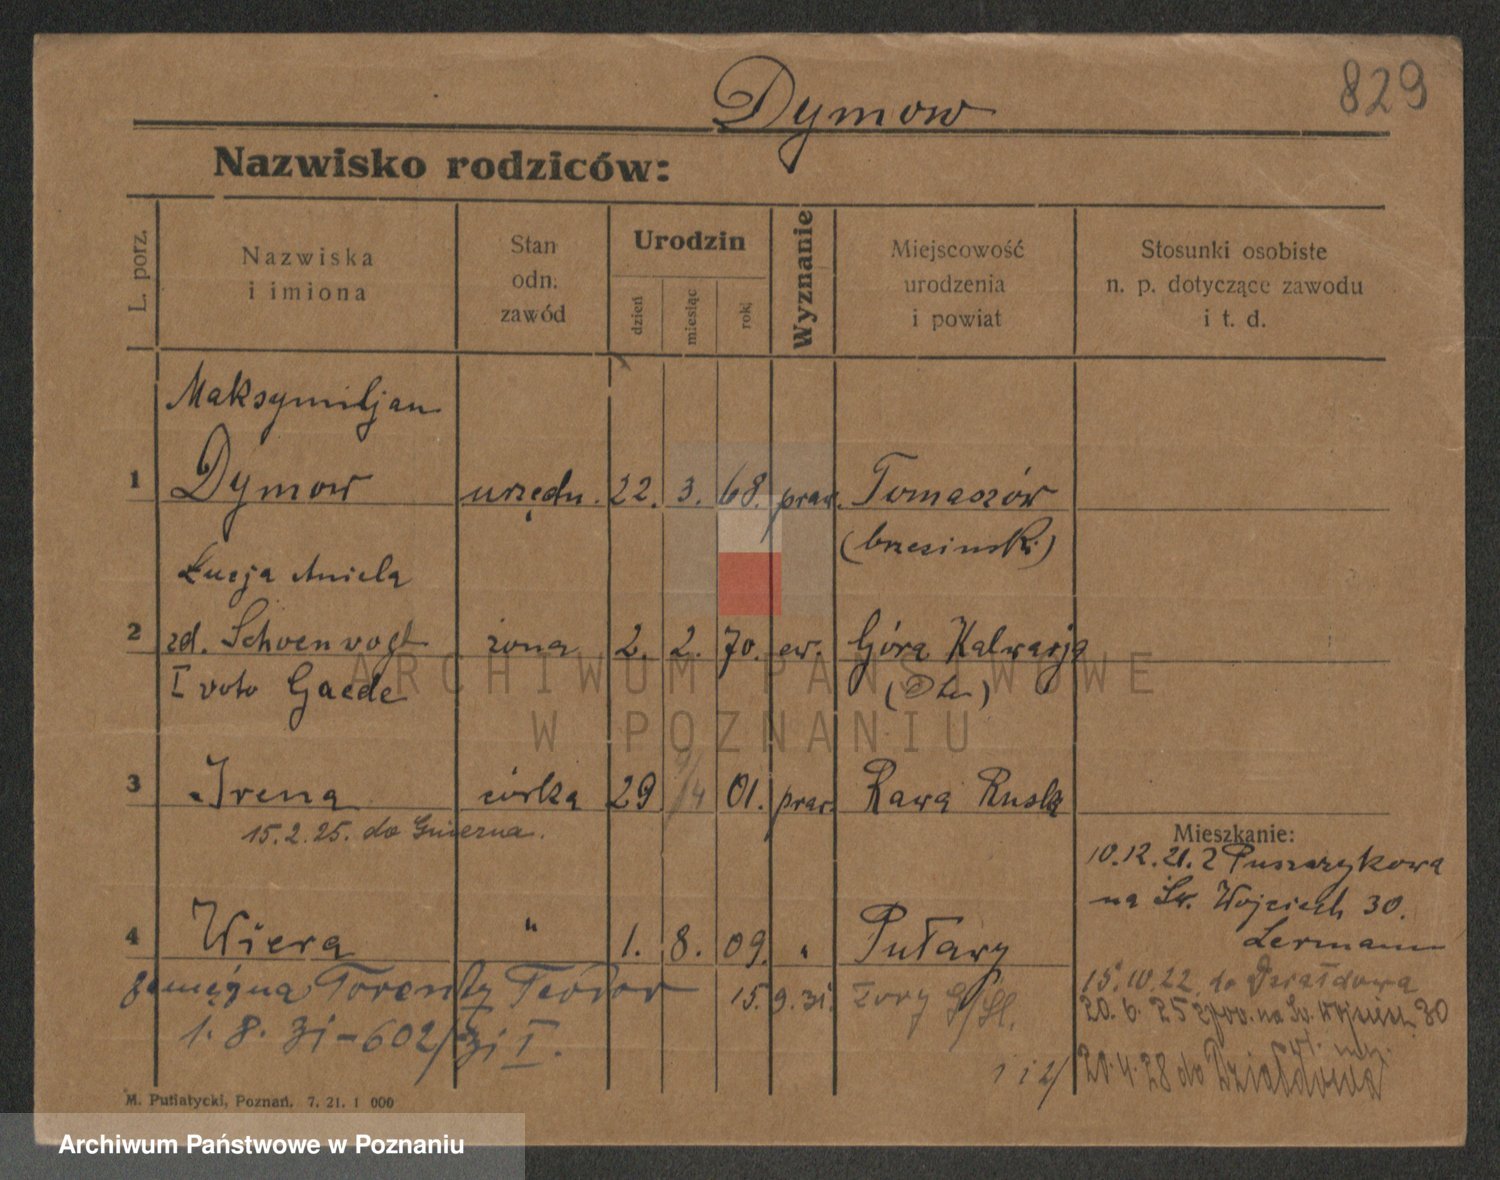 829
Dymow
Nazwisko rodziców:
L. porz.
Nazwiska
i imiona
Stan
odn.
zawód
Urodzin
dzień
miesiąc
rok
Wyznanie
Miejscowość
urodzenia
i powiat
Stosunki osobiste
n. p. dotyczące zawodu
i t. d.
Maksymiljan
1 Dymow urzędn. 22. 3. 68. praw. Tomaszów
(brzesinski)
Łucja Aniela
2 zd. Schoenvogt żona 2. 2. 70. ew. Góra Kalwarja
I voto Gaede
ARCHIWUM PAŃSTWOWE
W POZNANIU
3 Irena córka 29 /4 01. praw. Rawa Ruska
15.2.25. do Gniezna.
Mieszkanie:
10.12.21. z
na Św. Wojciech 30.
Lermann
4 Wiera " 1. 8. 09. " Puławy
zamężna Teodor 15.9.31. Żory G/Śl.
1.8.31-602/31 I.
15.10.22. do Działdowa
20.6.25 na Św. Wojciech 30
1 i 2/ 20.4.28 do Działdowa
M. Putiatycki, Poznań. 7. 21. 1 000
Archiwum Państwowe w Poznaniu